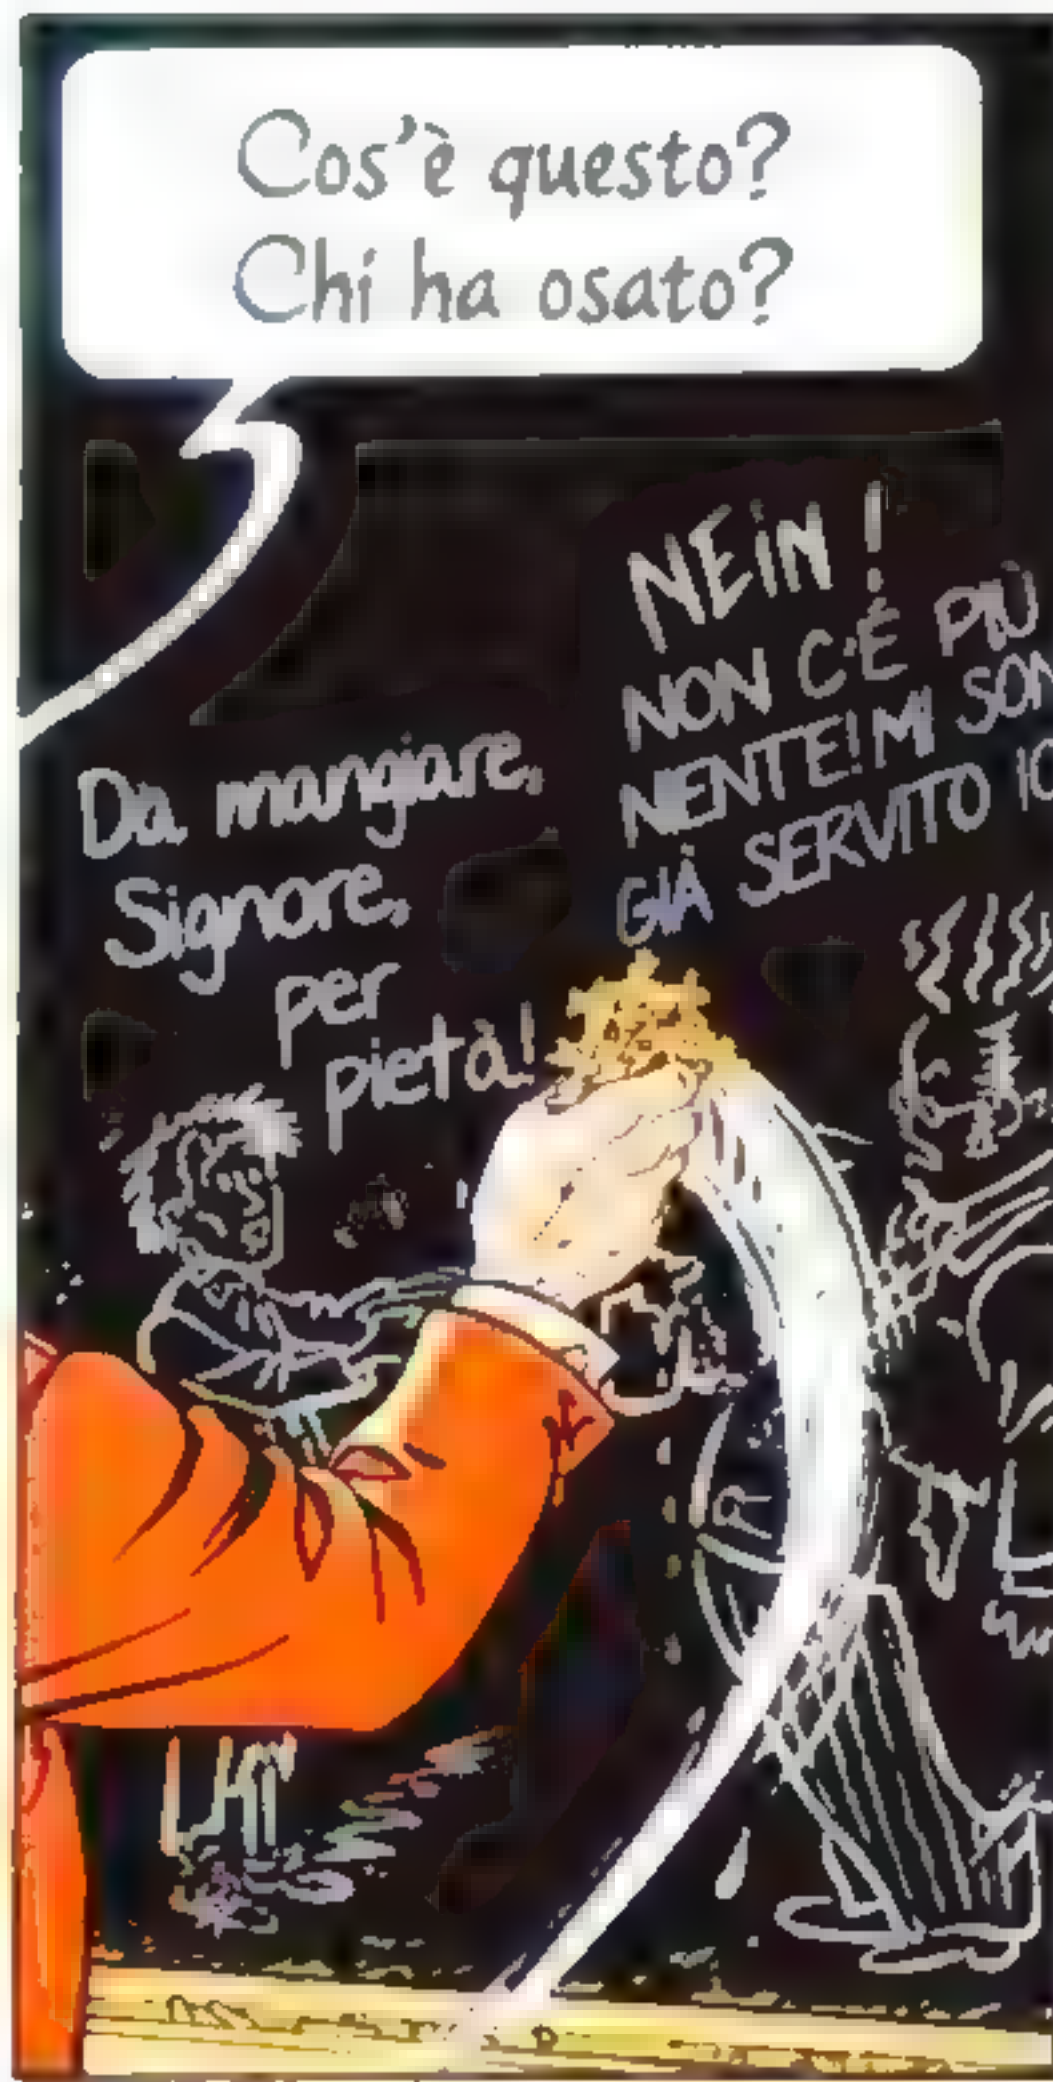 Cos'è questo?
Chi ha osato?
Da mangiare,
Signore,
per
pietà!
NEiN !
NON C'É PIÙ
NENTE! MI SON
GIÀ SERVITO IO
R